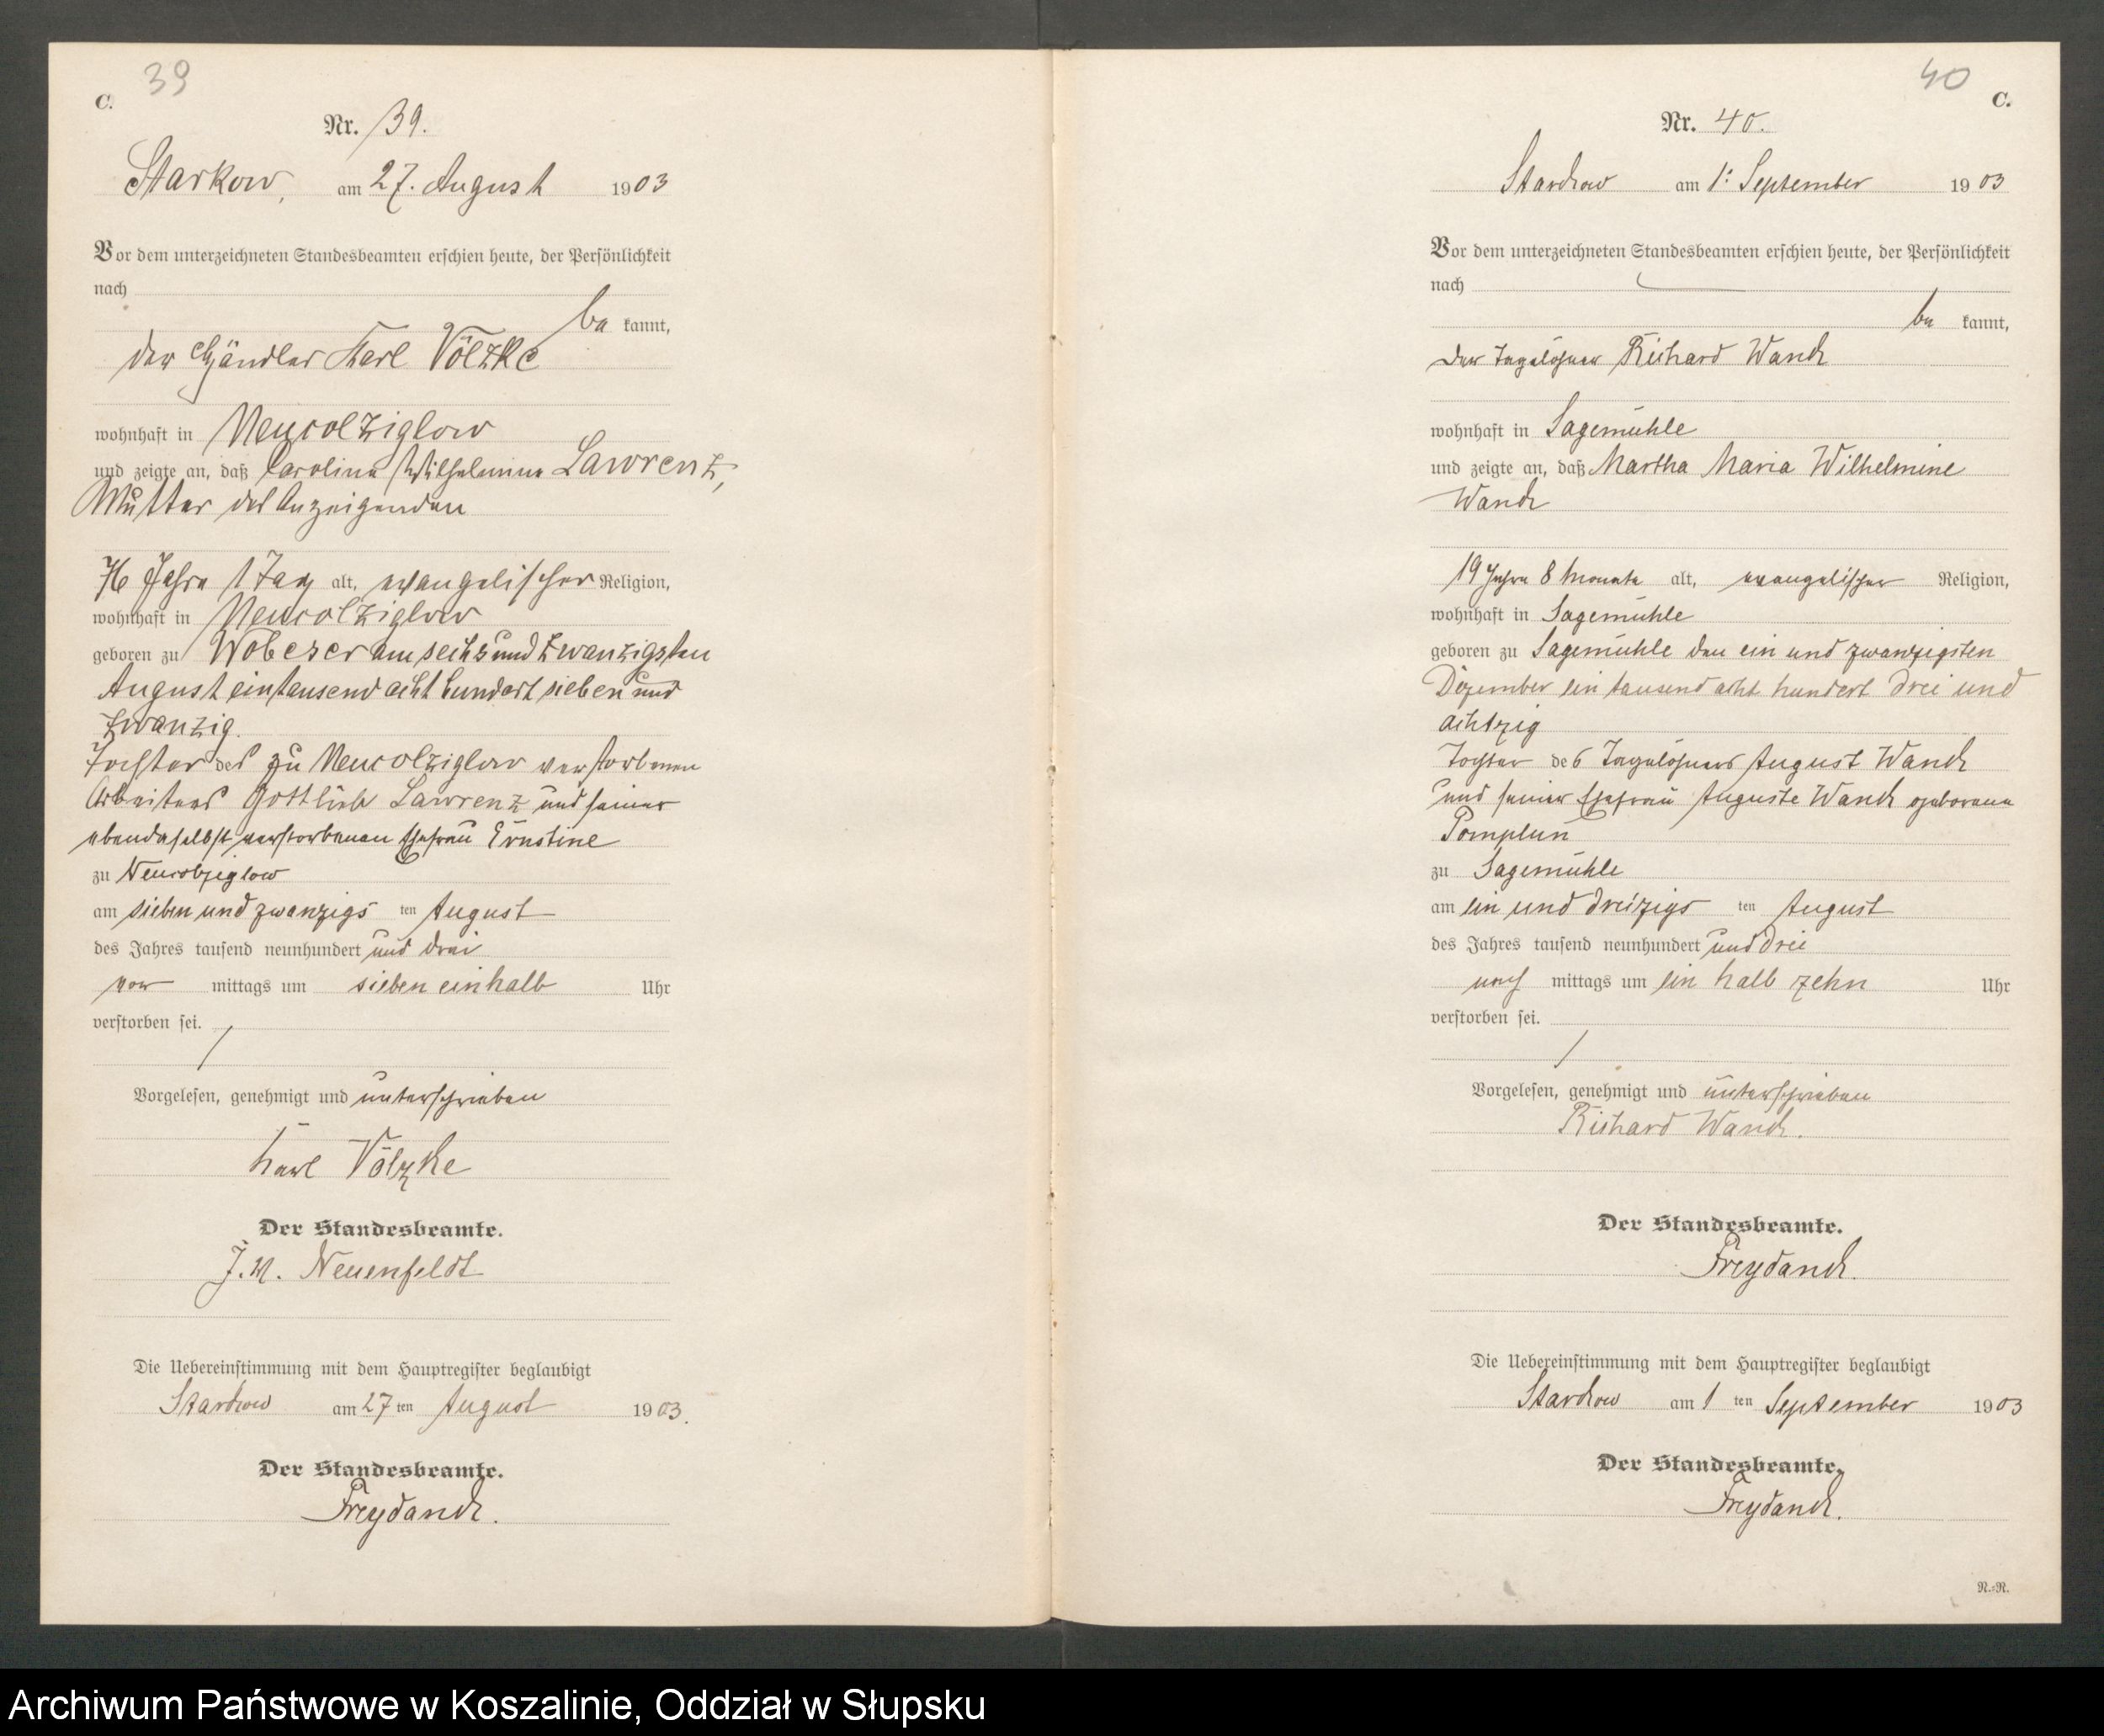 39
C.
Nr. 39.
Starkow, am 27. August 1903
Vor dem unterzeichneten Standesbeamten erschien heute, der Persönlichkeit
nach
be kannt,
der Händler Karl Völzke
wohnhaft in Neucolziglow
und zeigte an, daß Caroline Wilhelmine Lawrenz,
Mutter des Anzeigenden
76 Jahre 1 Tag alt, evangelischer Religion,
wohnhaft in Neucolziglow
geboren zu Wobeser am sechs und zwanzigsten
August eintausend acht hundert sieben und
zwanzig.
Tochter des zu Neucolziglow verstorbenen
Arbeiters Gottlieb Lawrenz und seiner
ebendaselbst verstorbenen Ehefrau Ernstine
zu Neucolziglow
am sieben und zwanzigs ten August
des Jahres tausend neunhundert und drei
vor mittags um sieben einhalb Uhr
verstorben sei.
Vorgelesen, genehmigt und unterschrieben
Karl Völzke
Der Standesbeamte.
J.V. Neuenfeldt
Die Uebereinstimmung mit dem Hauptregister beglaubigt
Starckow am 27 ten August 1903.
Der Standesbeamte.
Freydanck.
40
C.
Nr. 40.
Starckow am 1. September 1903
Vor dem unterzeichneten Standesbeamten erschien heute, der Persönlichkeit
nach
be kannt,
der Tagelöhner Richard Wanck
wohnhaft in Sagemühle
und zeigte an, daß Martha Maria Wilhelmine
Wanck
19 Jahre 8 Monate alt, evangelischer Religion,
wohnhaft in Sagemühle
geboren zu Sagemühle den ein und zwanzigsten
Dezember ein tausend acht hundert drei und
achtzig
Tochter des Tagelöhners August Wanck
und seiner Ehefrau Auguste Wanck geborene
Pomplun
zu Sagemühle
am ein und dreizigs ten August
des Jahres tausend neunhundert und drei
nach mittags um ein halb zehn Uhr
verstorben sei.
Vorgelesen, genehmigt und unterschrieben
Richard Wanck.
Der Standesbeamte.
Freydanck.
Die Uebereinstimmung mit dem Hauptregister beglaubigt
Starckow am 1 ten September 1903
Der Standesbeamte.
Freydanck.
N.=N.
Archiwum Państwowe w Koszalinie, Oddział w Słupsku